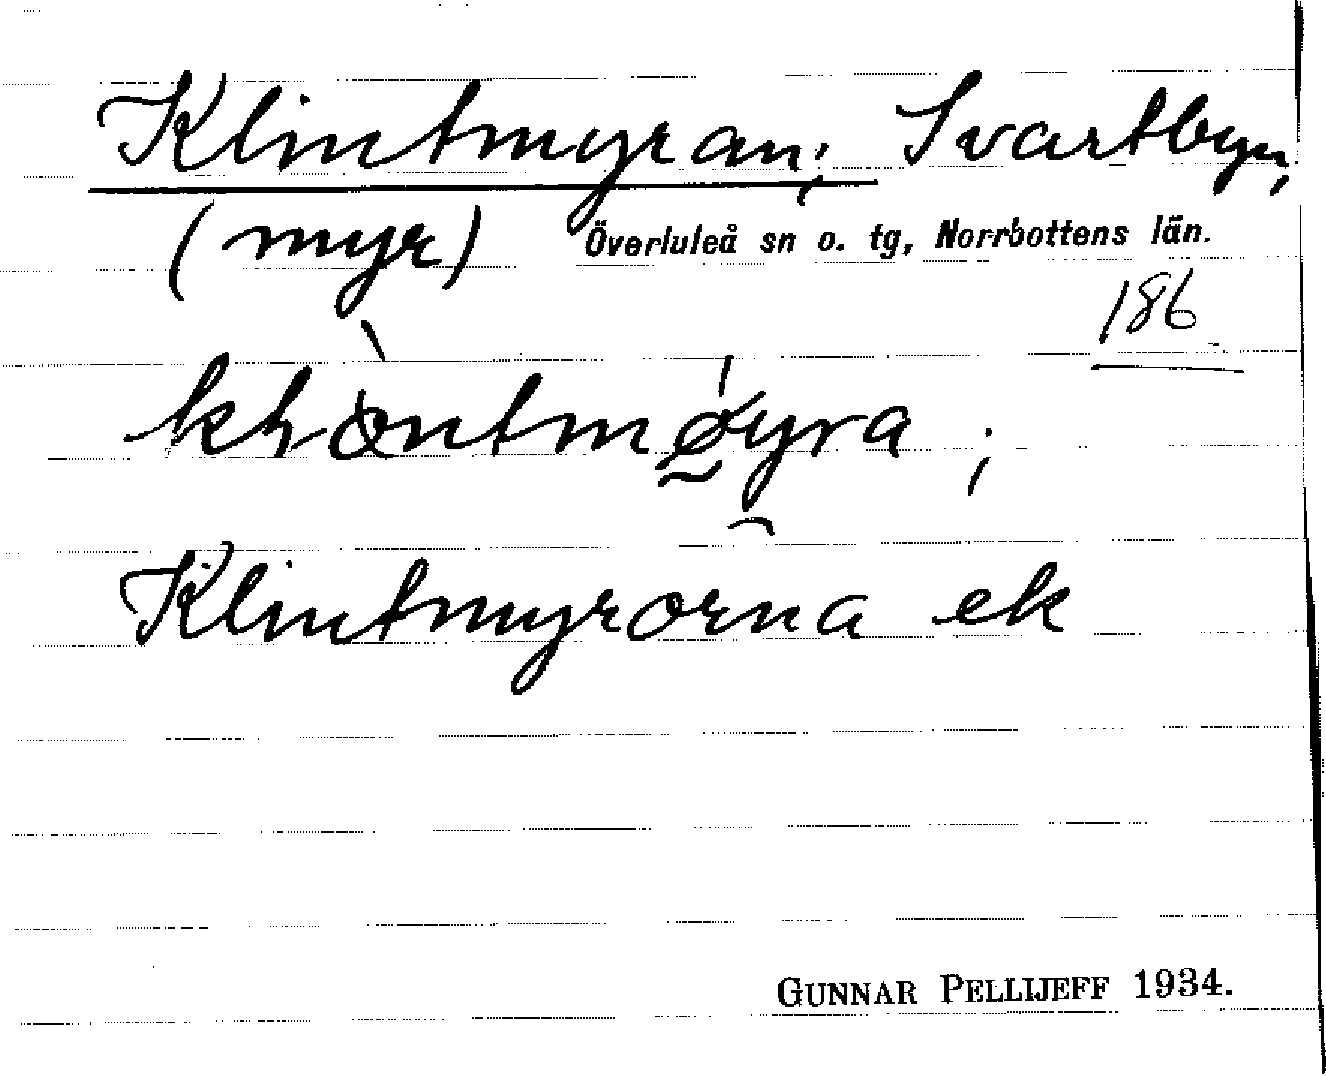 Klintmyran; Svartbyn,
(myr) Överluleå sn o. tg, Norrbottens län.
186
Klintmyrorna ek
GUNNAR PELLIJEFF 1934.